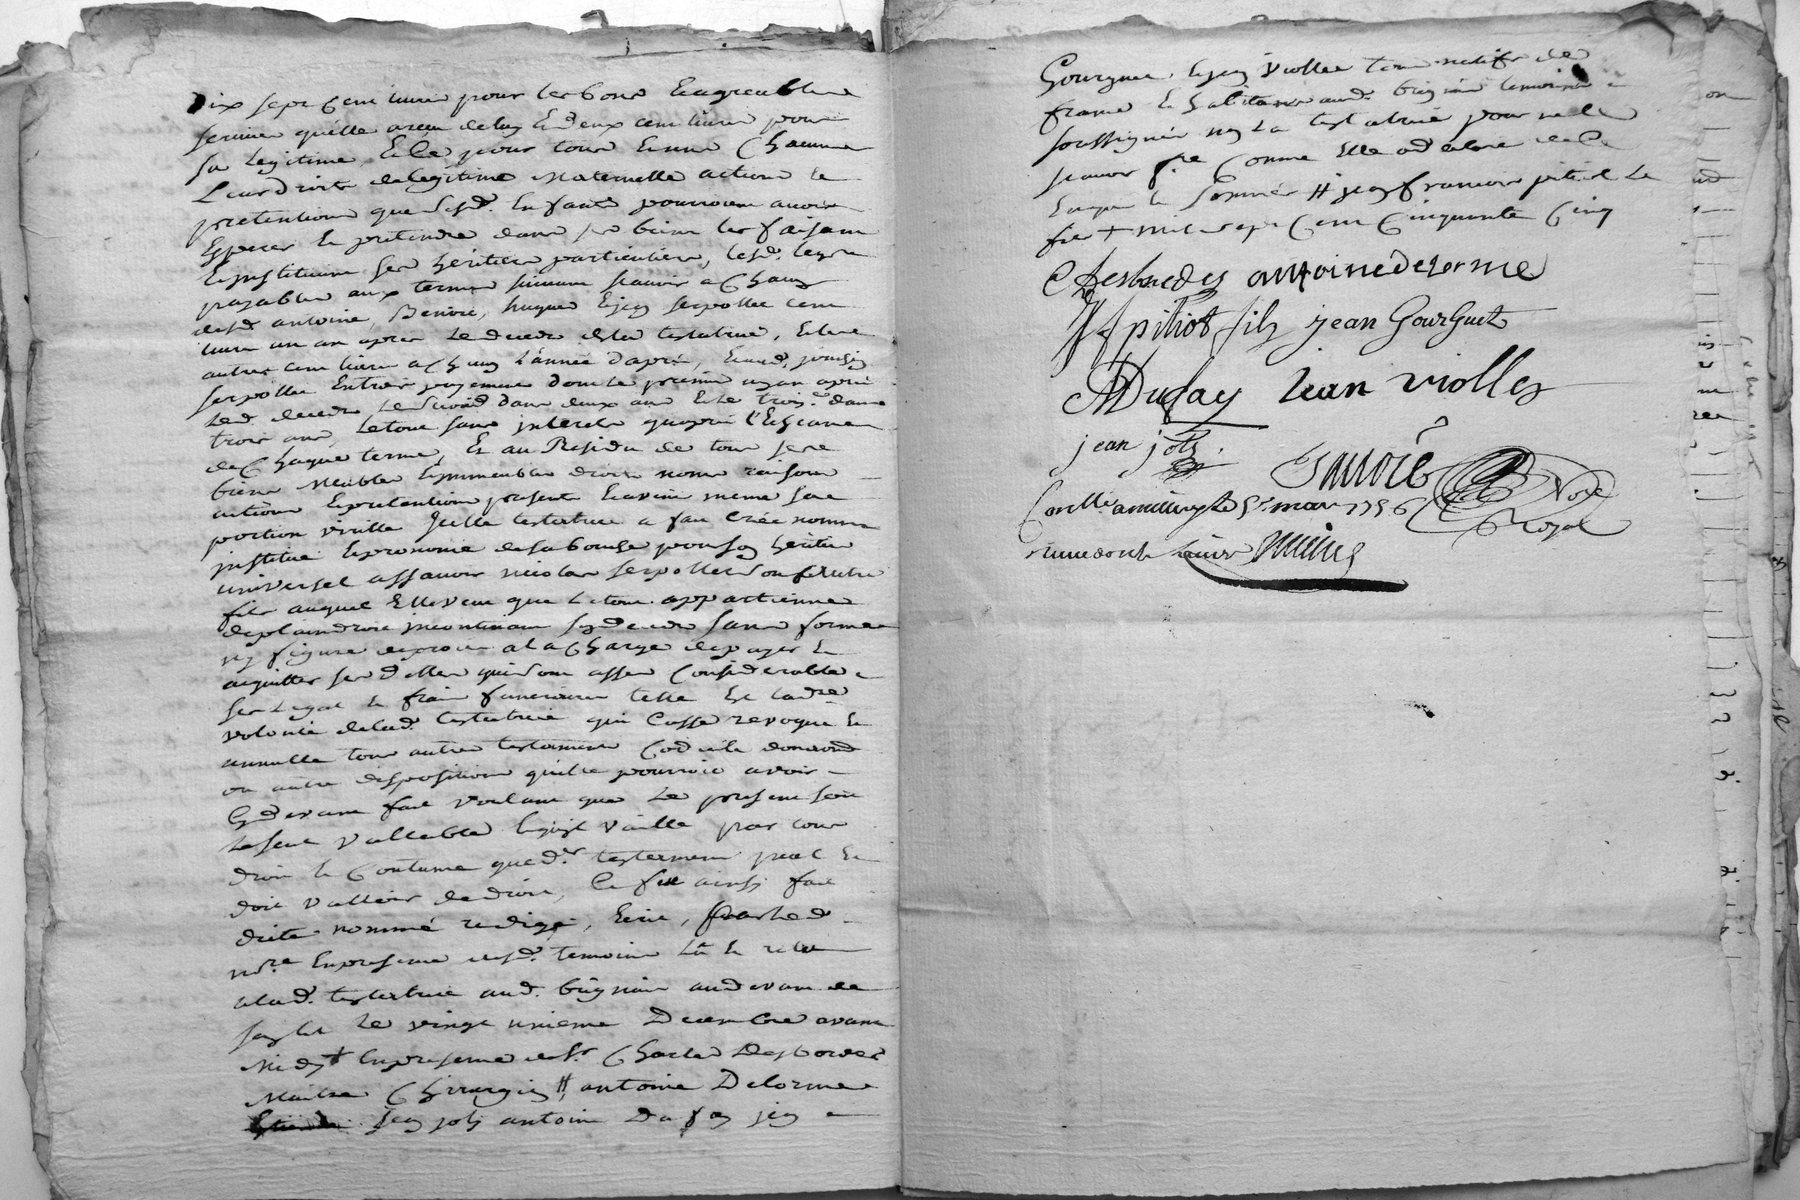 Dix sept cent livres pour les bons & agreables
services quelle a receu de luy & deux cent livres pour
sa legitime, & ce pour tous & une chacune
leurs droits de legitime maternelle actions &
pretentions que sesd. enfants pourroient avoir
esperer & pretendre dans ses biens les faisant
& instituant ses heritiers particuliers, lesd. legs
payables aux termes suivans scavoir a chacun
desd. antoine, Benoit, hugues & jean serpollet cent
livres un an apres le deces de la testatrice, & les
autres cent livres a chacun l'année d'après,
serpollet en trois payements dont le premier un an apres
led. deces le second dans deux ans & le trois.e dans
trois ans, le tout sans interets qu'apres l'echeance
de chaque terme, Et au Residu de tous ses
biens meubles & immeubles droits noms raisons
actions & pretentions presents & avenir meme sa
portion virille icelle testatrice a fait créé nommé
institué & prononcé de sa bouche pour son heritier
universel assavoir nicolas serpollet son
fils auquel Elle veut que le tout appartienne
de plain droit incontinant son deces sans forme
ny figure de proces a la charge de payer &
acquitter ses dettes qui sont asses considerables
ses legats & frais funeraires telle est la der.e
volonté de lad. testatrice qui casse revoque &
annulle tous autres testaments Codicile donations
ou autres dispositions quelle pourroit avoir
Cy devant fait voulant que le present soit
le seul vallable & quil vaille par tout
droit & Coutume que d.r testament peut &
doit valloir de droit, Ce fut ainsi fait
dicté nommé redigé, Ecrit, par led
no.re En presence desd. temoins Lû & relu
a lad. testatrice aud. brignais audevant de
le vingt unieme Decembre avant
Midy + En presence de s.r Charles Desbordes
Maitre Chirurgien // antoine Delorme
jean joly antoine Dufay jean
Gourguet & jean Viollet tous natifs de
france & habitans aud. brignais temoins
soussignés non La testatrice pour ne le
scavoir f.re Comme Elle a declaré de ce
Enquise & sommée // jean francois pitiot le
fils + mil sept Cent Cinquante Cinq
C Desbordes antoine delorme
JF pitiot fils jean Gourguet
A Dufay Jean viollet
jean joly
No.re
Royal
Con.lle a millery Le 5.e mars 1756